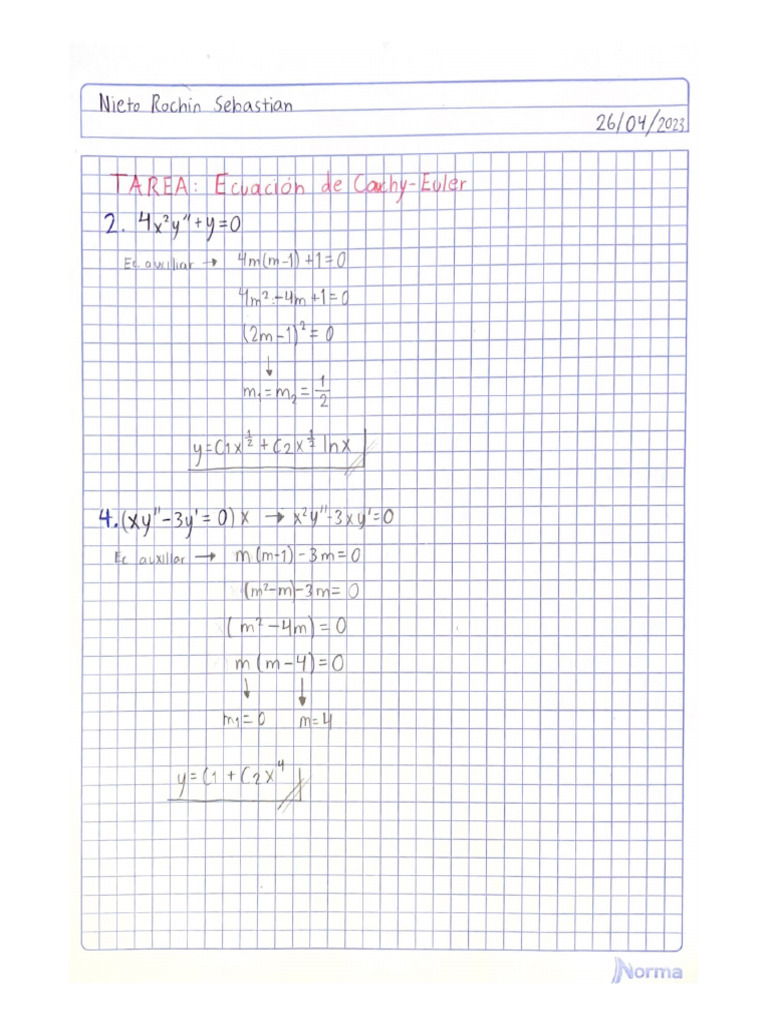 Nieto Rochin Sebastian
26/04/2023
TAREA: Ecuación de Cachy-Euler
2. 4x²y"+y=0
Ec auxiliar → 4m(m-1)+1=0
4m²-4m+1=0
(2m-1)²=0
↓
m₁=m₂=1/2
y=C1x^1/2+C2x^1/2 lnx
4.(xy"-3y'=0)x → x²y"-3xy'=0
Ec auxiliar → m(m-1)-3m=0
(m²-m)-3m=0
(m²-4m)=0
m(m-4)=0
↓ ↓
m₁=0 m=4
y=C1+C2x⁴
Norma